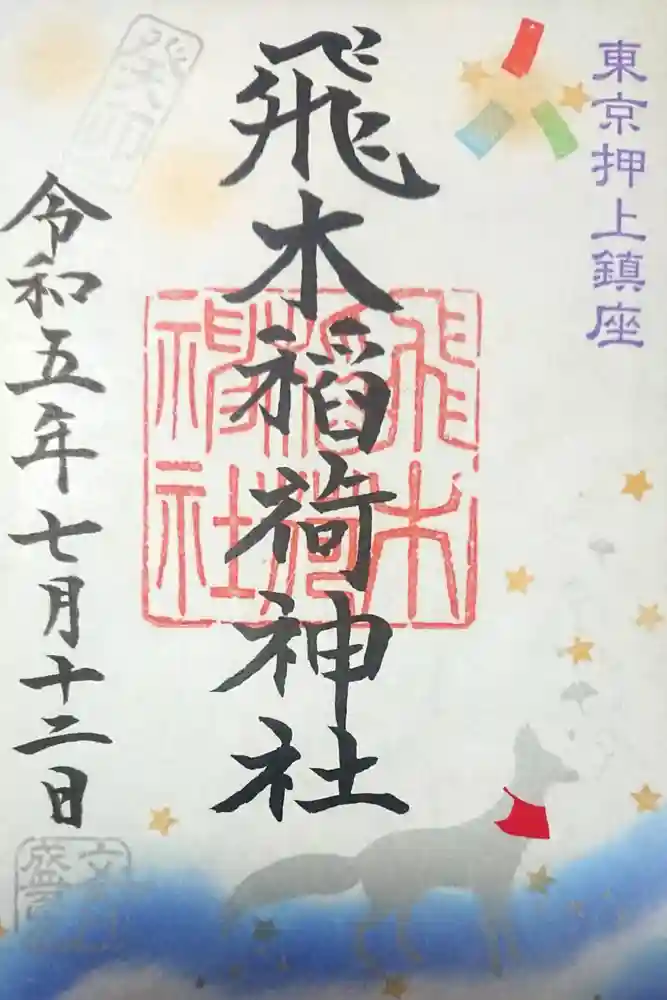 東京押上鎮座
飛木稲荷神社
飛木
稲荷
神社
令和五年七月十二日